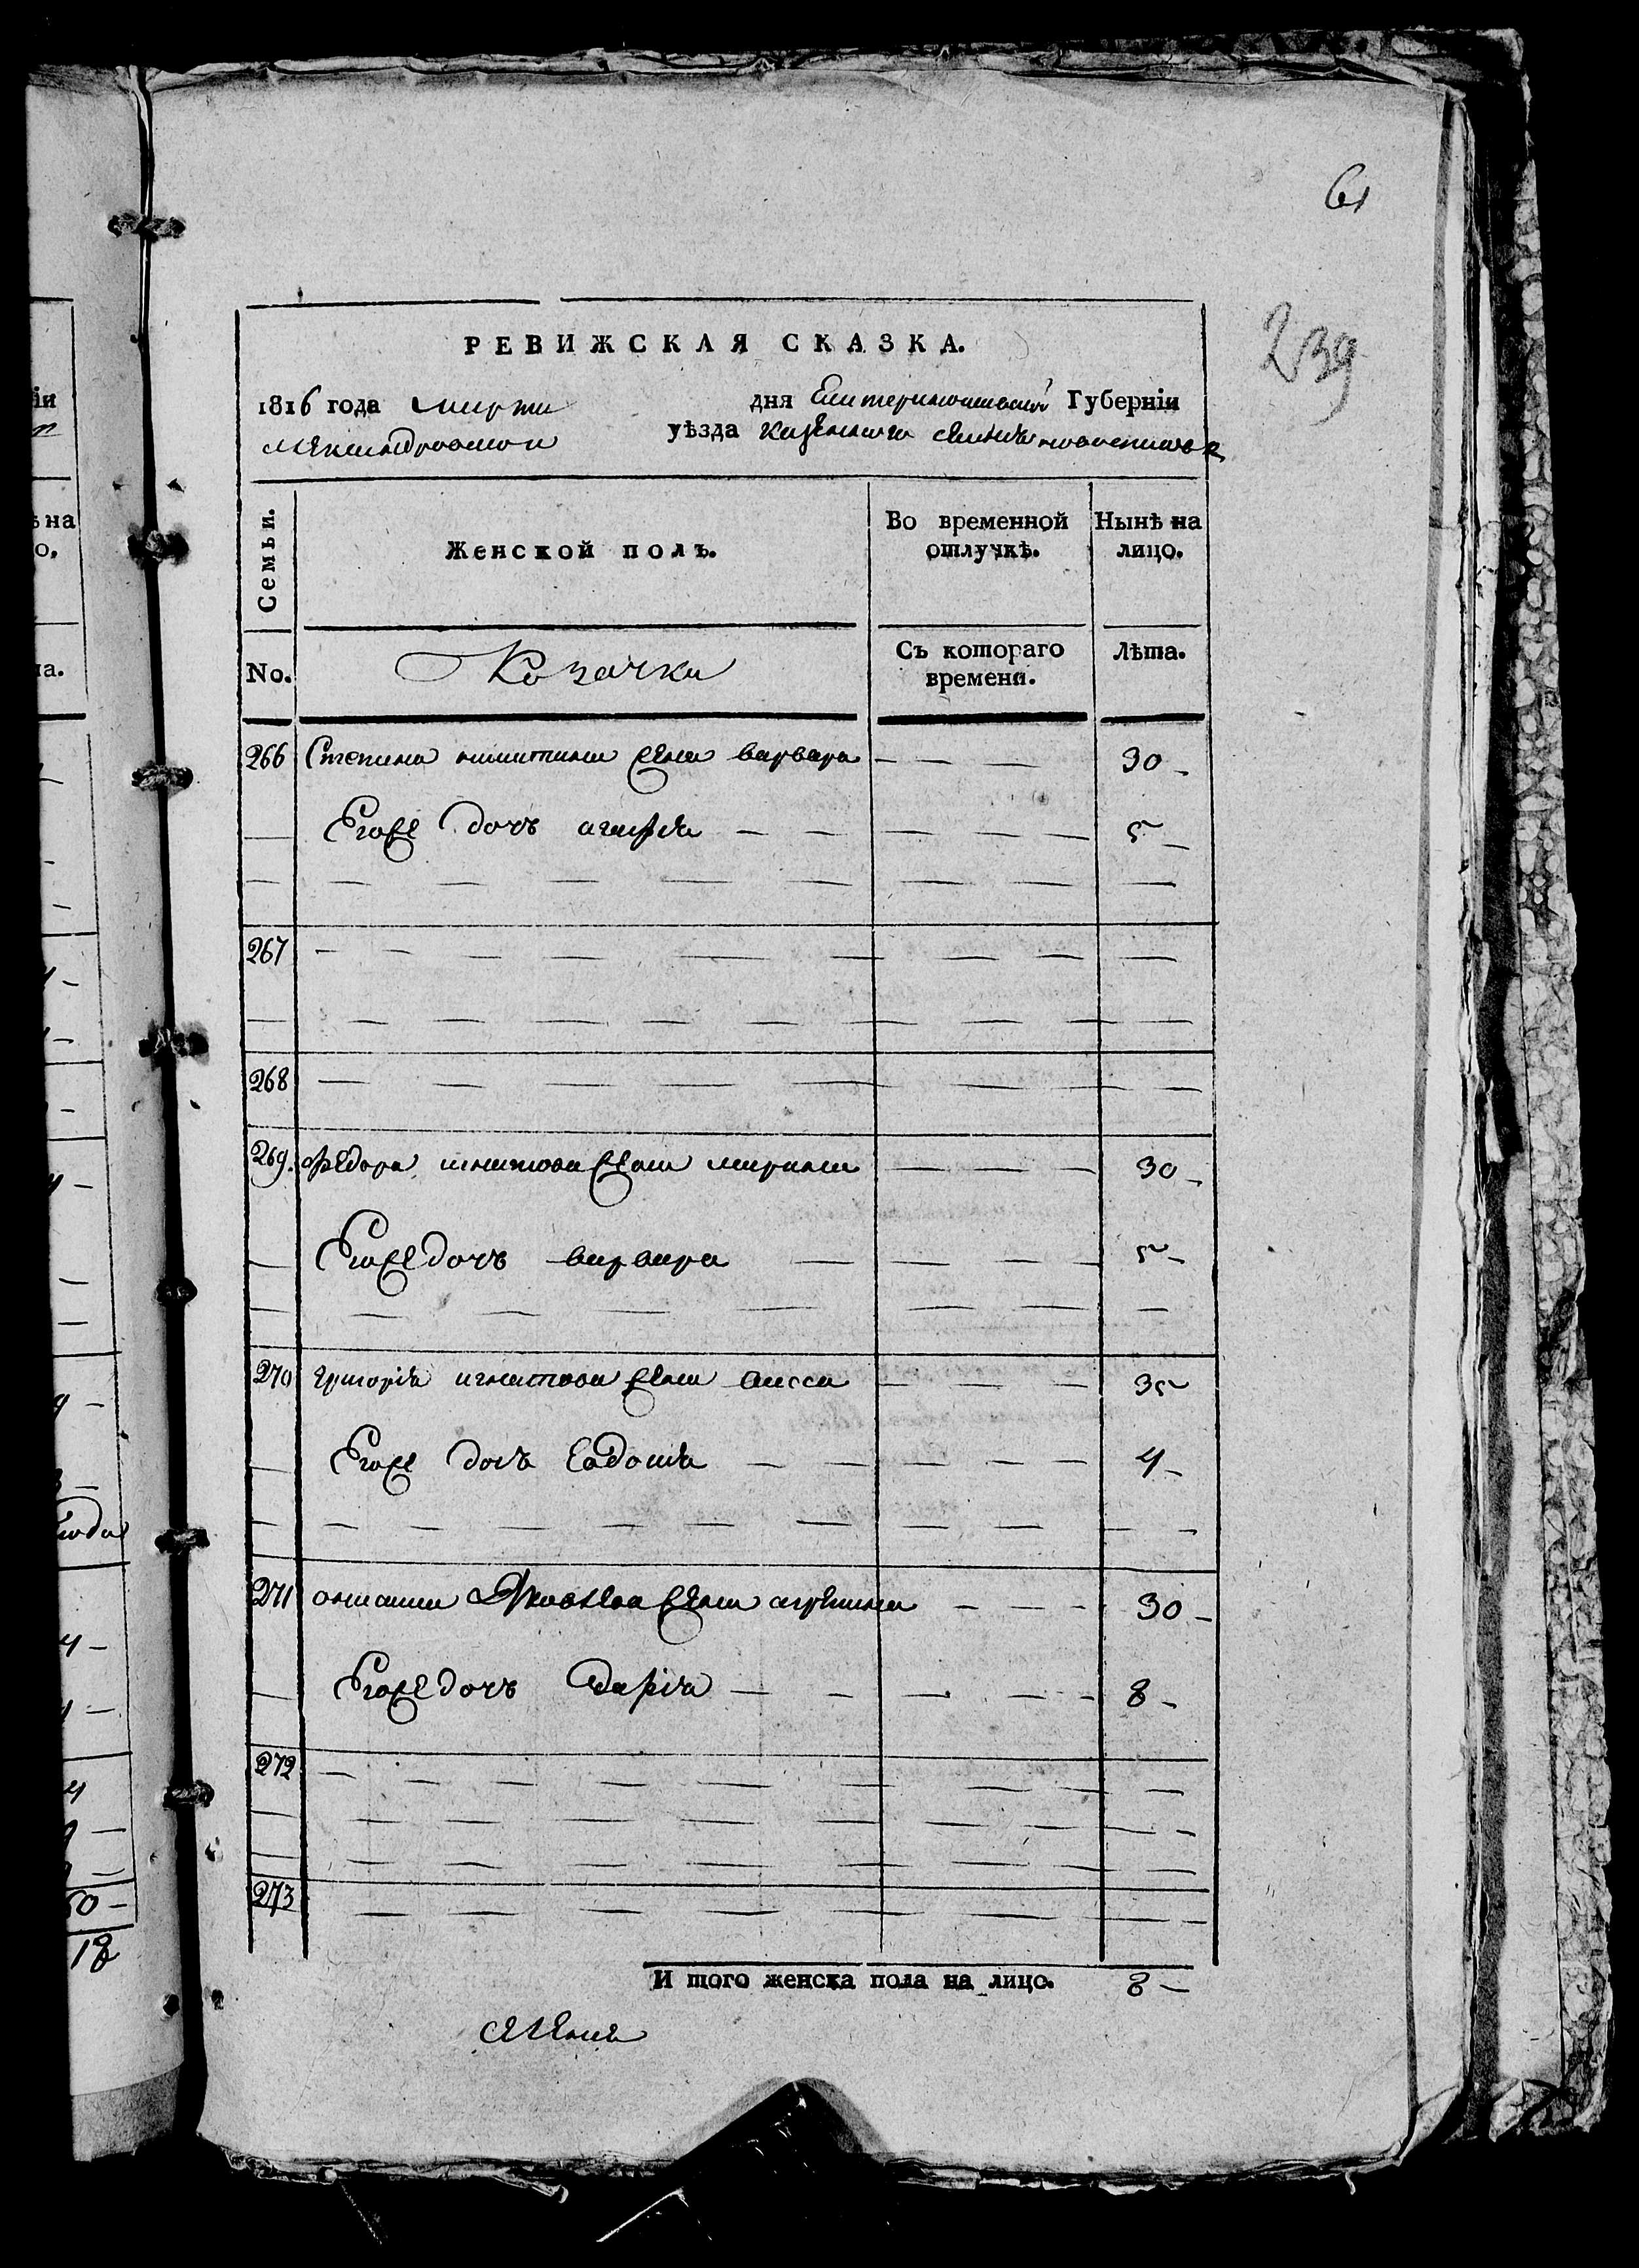 61
239
РЕВИЖСКАЯ СКАЗКА.
1816 года марта дня Екатеринославской Губерніи
Александровского уѣзда казенного селения
Семьи. Женской полъ. Во временной отлучкѣ. Нынѣ на лицо.
No. Козачки Съ котораго времени. Лѣта.
266 Степана никитина жена варвара — — — 30 —
— Егоже дочь агафія — — — — — 5 —
267 — — —
268 — — —
269. федора игнатова жена марина — — — 30 —
— Егоже дочь варвара — — — — 5 —
270 григорія игнатова жена анна — — — 35
— Егоже дочь Евдокия — — — — — 4 —
271 Яковлева жена агрипина — — — 30 —
— Егоже дочь дарія — — — — — 8 —
272 — — —
273 — — —
И того женска пола на лицо. 8 —